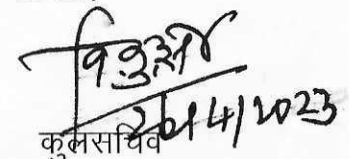 26/4/2023
कुलसचिव